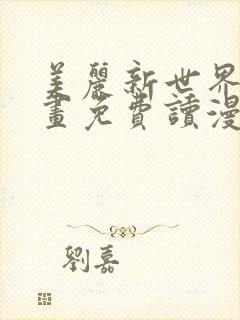 美麗新世界
畫免費讀漫
劉嘉